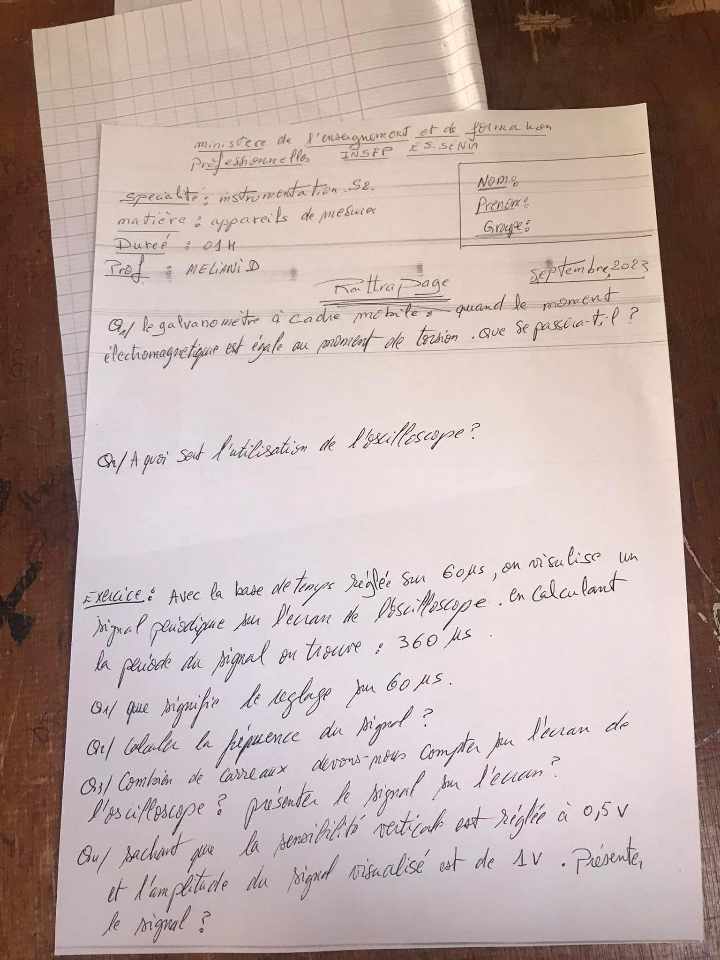 ministère de l'enseignement et de formation
Professionnelles INSFP ES.SENIA
Spécialité : instrumentation. S2.
matière : appareils de mesures
Dureé : 01H
Prof : MELIANI D
Nom :
Prénom :
Groupe :
Rattrapage
Septembre, 2023
Q1/ le galvanomètre à cadre mobile : quand le moment
électromagnetique est égale au moment de torsion. que se passera-t-il ?
Q2/ A quoi sert l'utilisation de l'oscilloscope ?
Exercice : Avec la base de temps réglée sur 60 µs, on visualise un
signal periodique sur l'écran de l'oscilloscope. en calculant
la periode du signal on trouve : 360 µs.
Q1/ que signifie le reglage sur 60 µs.
Q2/ Calculer la fréquence du signal ?
Q3/ Combien de carreaux devons-nous compter sur l'écran de
l'oscilloscope ? présenter le signal sur l'écran ?
Q4/ sachant que la sensibilité verticale est réglée à 0,5 v
et l'amplitude du signal visualisé est de 1 v. Présenter
le signal ?